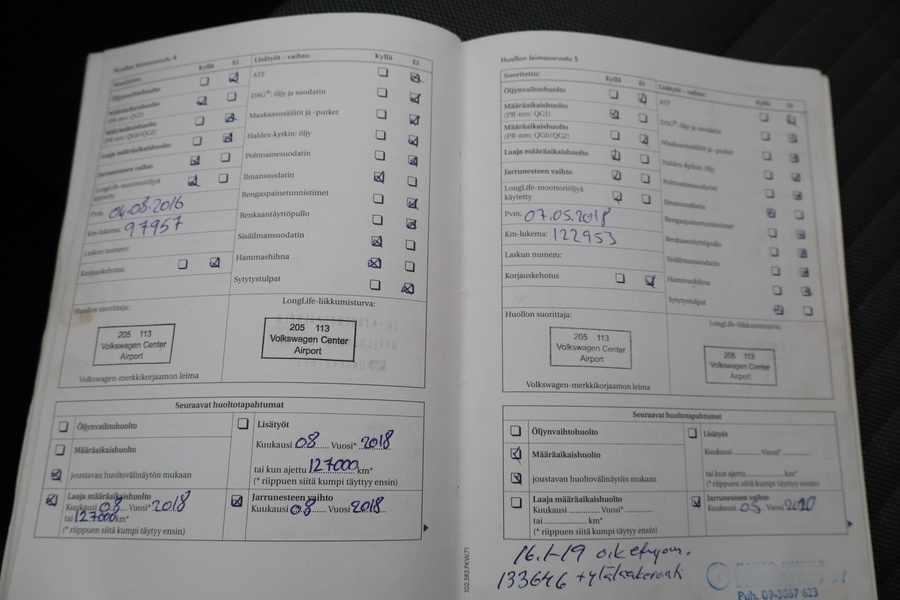 Huollon leimausruutu 4
Suoritettu: Kyllä Ei
Öljynvaihtohuolto
Määräaikaishuolto
(PR-nro: QG1)
Määräaikaishuolto
(PR-nro: QG0/QG2)
Laaja määräaikaishuolto
Jarrunesteen vaihto
LongLife-moottoriöljyä
käytetty
Pvm. 04.08.2016
Km-lukema: 97957
Laskun numero:
Korjauskehotus
Lisätyöt - vaihto: Kyllä Ei
ATF
DSG®: öljy ja suodatin
Maakaasusäiliöt ja -putket
Haldex-kytkin: öljy
Polttoainesuodatin
Ilmansuodatin
Rengaspainetunnistimet
Renkaantäyttöpullo
Sisäilmansuodatin
Hammashihna
Sytytystulpat
Huollon suorittaja:
205 113
Volkswagen Center
Airport
Volkswagen-merkkikorjaamon leima
LongLife-liikkumisturva:
205 113
Volkswagen Center
Airport
Seuraavat huoltotapahtumat
Öljynvaihtohuolto
Määräaikaishuolto
joustavan huoltovälinäytön mukaan
Laaja määräaikaishuolto
Kuukausi 08 Vuosi* 2018
tai 127000 km*
(* riippuen siitä kumpi täytyy ensin)
Lisätyöt
Kuukausi 08 Vuosi* 2018
tai kun ajettu 127000 km*
(* riippuen siitä kumpi täytyy ensin)
Jarrunesteen vaihto
Kuukausi 08 Vuosi 2018
Huollon leimausruutu 5
Suoritettu: Kyllä Ei
Öljynvaihtohuolto
Määräaikaishuolto
(PR-nro: QG1)
Määräaikaishuolto
(PR-nro: QG0/QG2)
Laaja määräaikaishuolto
Jarrunesteen vaihto
LongLife-moottoriöljyä
käytetty
Pvm. 07.05.2018
Km-lukema: 122953
Laskun numero:
Korjauskehotus
Lisätyöt - vaihto: Kyllä Ei
ATF
DSG®: öljy ja suodatin
Maakaasusäiliöt ja -putket
Haldex-kytkin: öljy
Polttoainesuodatin
Ilmansuodatin
Rengaspainetunnistimet
Renkaantäyttöpullo
Sisäilmansuodatin
Hammashihna
Sytytystulpat
Huollon suorittaja:
205 113
Volkswagen Center
Airport
Volkswagen-merkkikorjaamon leima
LongLife-liikkumisturva:
205 113
Volkswagen Center
Airport
Seuraavat huoltotapahtumat
Öljynvaihtohuolto
Määräaikaishuolto
joustavan huoltovälinäytön mukaan
Laaja määräaikaishuolto
Kuukausi Vuosi*
tai km*
(* riippuen siitä kumpi täytyy ensin)
Lisätyöt
Kuukausi Vuosi*
tai kun ajettu km*
(* riippuen siitä kumpi täytyy ensin)
Jarrunesteen vaihto
Kuukausi 05 Vuosi 2020
16.1-19
133646
Puh. 09-3887 623